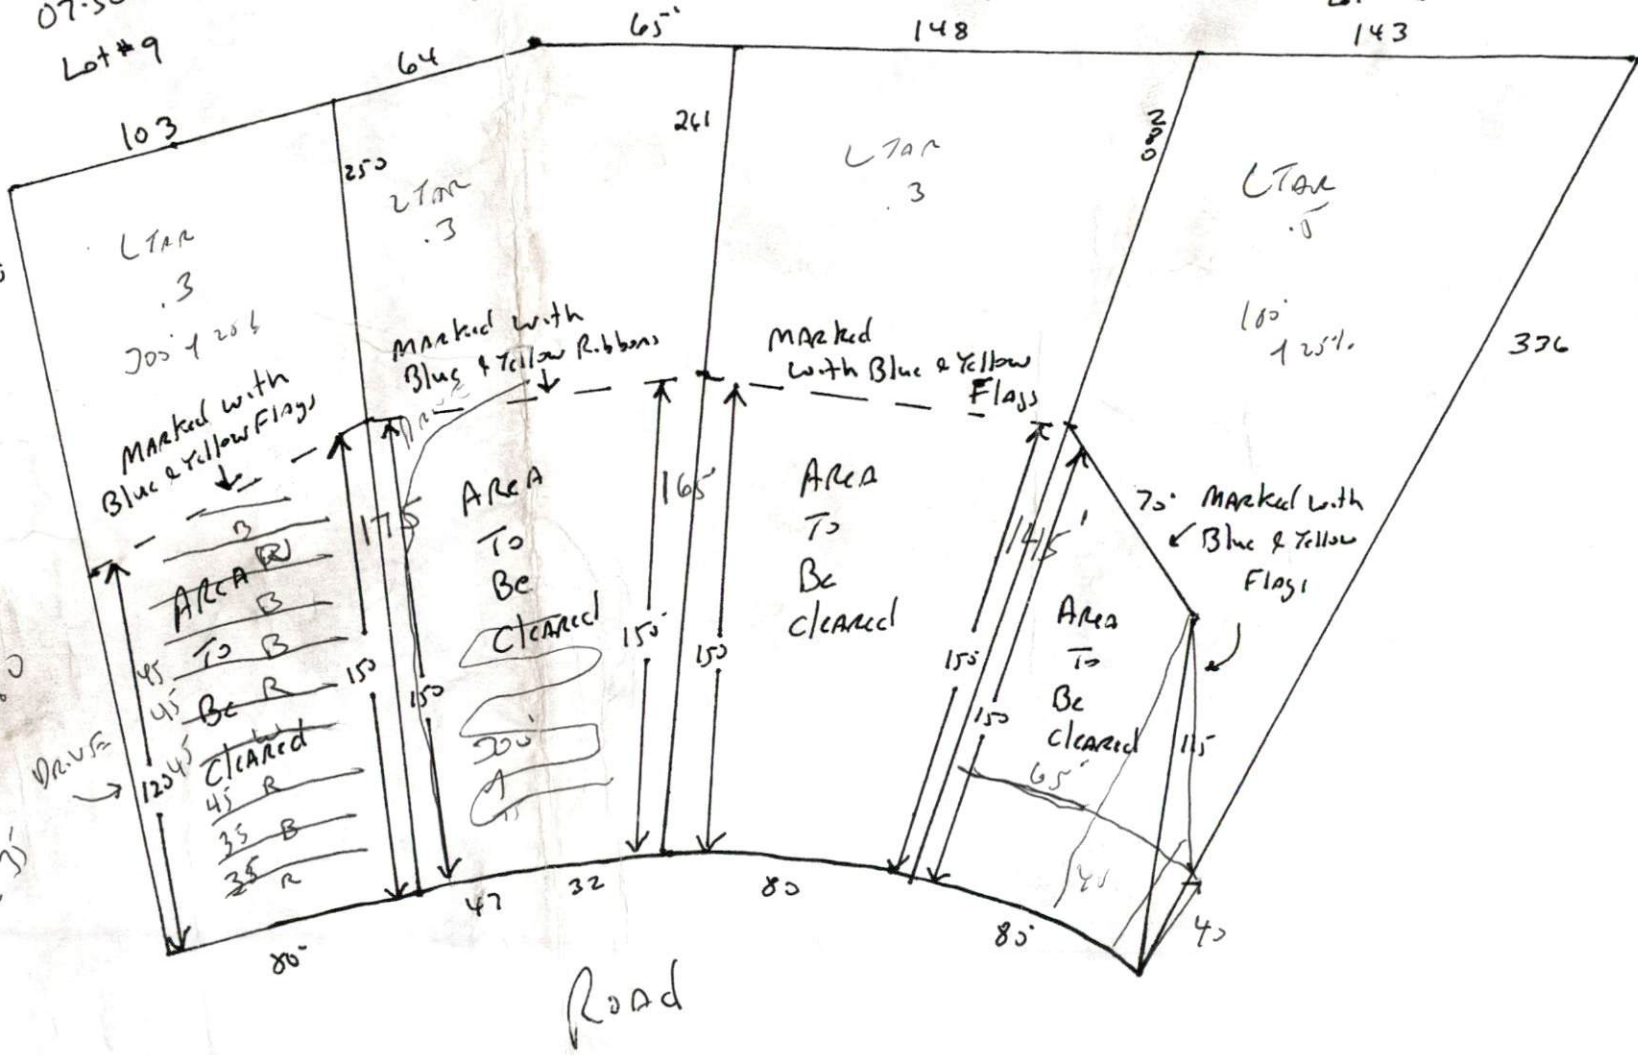 Lot #9
103
64
65'
148
143
250
261
280
336
LTAR
.3
LTAR
.3
LTAR
.3
LTAR
100'
25%
Marked with
Blue & Yellow Flags
Marked with
Blue & Yellow Ribbons
Marked
with Blue & Yellow
Flags
70'
Marked with
Blue & Yellow
Flags
Area
To
Be
Cleared
Area
To
Be
Cleared
Area
To
Be
Cleared
Area
To
Be
Cleared
B
B
B
R
R
B
R
45
45
45
45
35
35
Drive
120
150
175
150
165'
150
150
145'
150
150
115
65'
40
80'
47
32
80
85'
40
Road